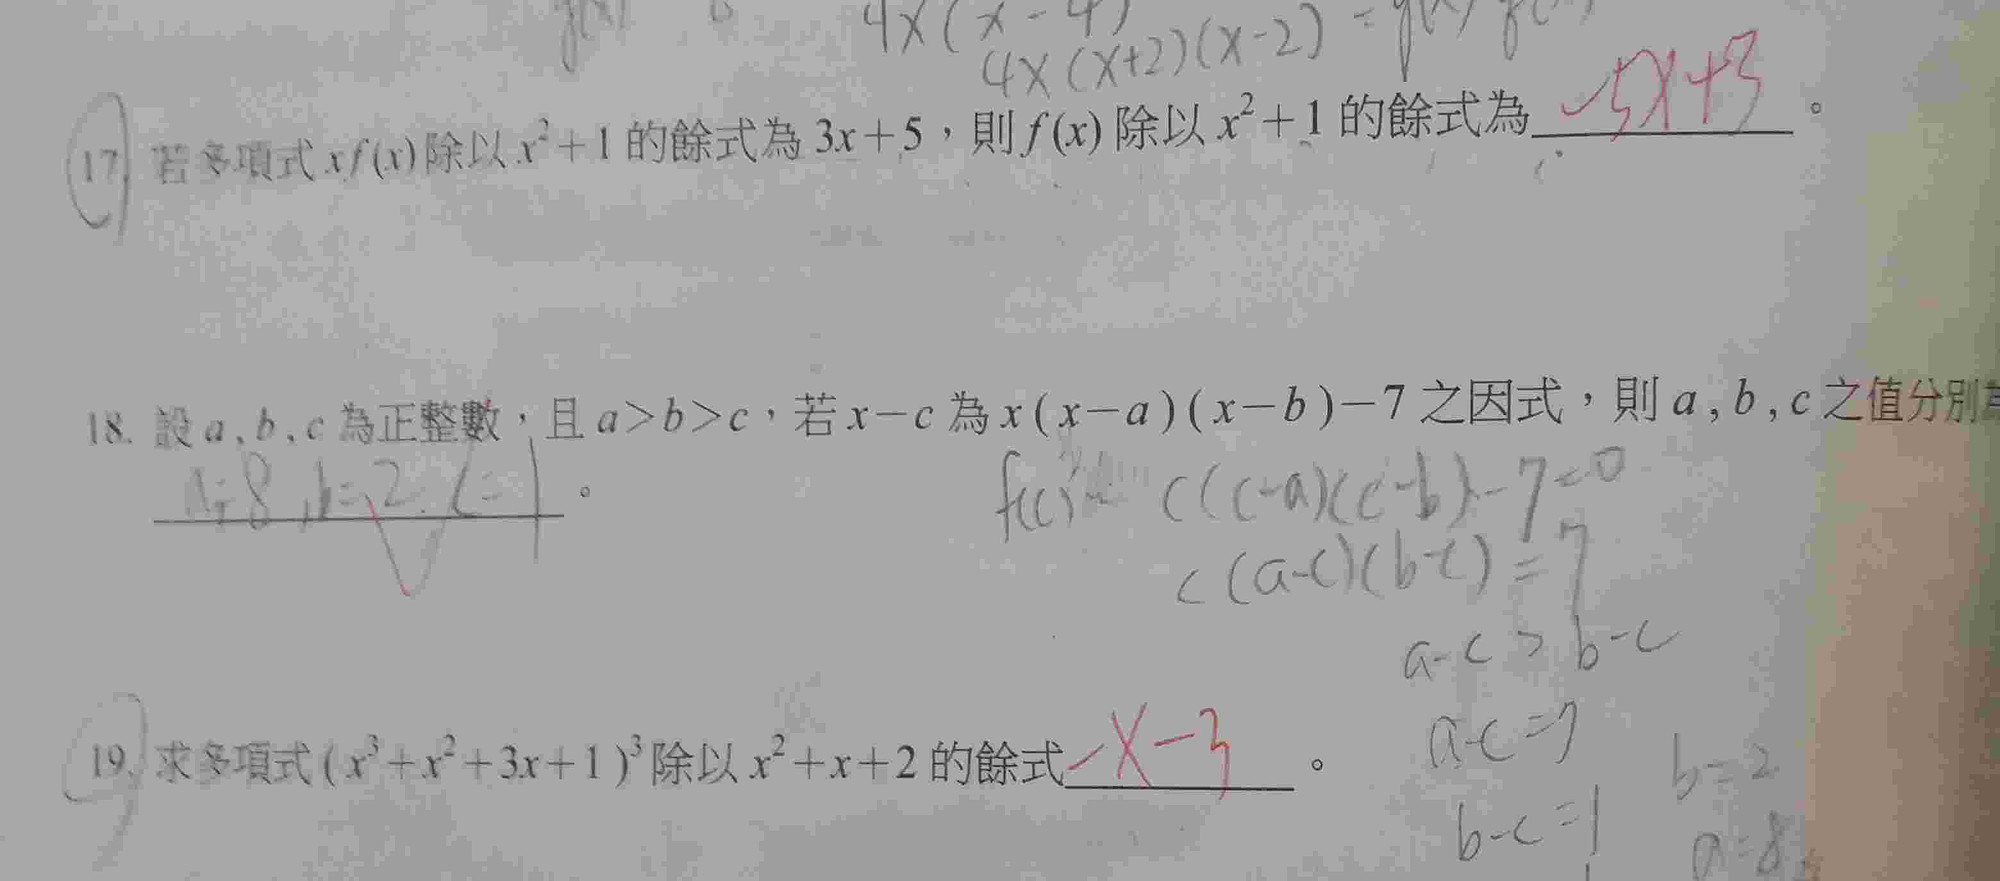 4x(x-4)
4x(x+2)(x-2) =
17. 若多項式 xf(x) 除以 x²+1 的餘式為 3x+5，則 f(x) 除以 x²+1 的餘式為 -5x+3 。
18. 設 a, b, c 為正整數，且 a>b>c，若 x-c 為 x(x-a)(x-b)-7 之因式，則 a, b, c 之值分別
a=8, b=2, c=1 。
f(c) = c(c-a)(c-b)-7=0
c(a-c)(b-c)=7
a-c > b-c
19. 求多項式 (x³+x²+3x+1)³ 除以 x²+x+2 的餘式 -x-3 。
a-c=7
b=2
b-c=1
a=8